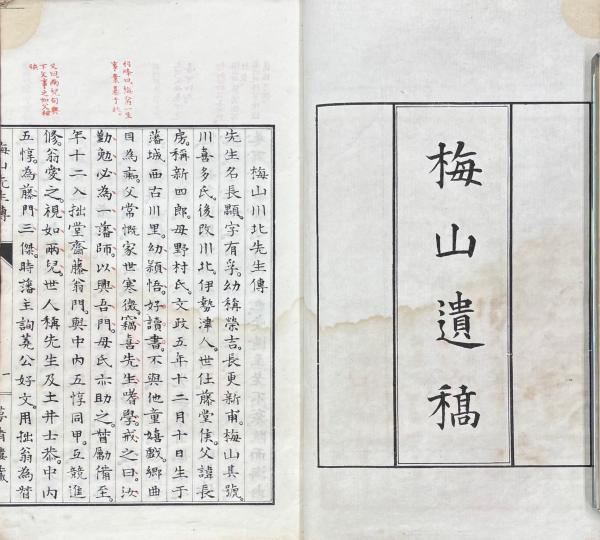 梅山遺稿
梅山川北先生傳
先生名長顒。字有孚。幼稱榮吉。長更新甫。梅山其號。
川喜多氏。後改川北。伊勢津人。世仕藤堂侯。父諱長
房。稱新四郎。母野村氏。文政五年十二月十日生于
藩城西古川里。幼穎悟。好讀書。不與他童嬉戲。鄉曲
目為癡。父常慨家世寒微。竊喜先生嗜學。戒之曰。汝
勤勉必為一藩師。以興吾門。母氏亦助之。督勵備至。
年十二入拙堂齋藤翁門。與中內五惇同甲。互競進
修。翁愛之。視如兩兒。世人稱先生及土井士恭。中內
五惇。為藤門三傑。時藩主詢蕘公好文。用拙翁為督
曰梅翁一生
事業基于此。
又曰兩兒句與
下父事之如父相
映
梅山先生傳
一